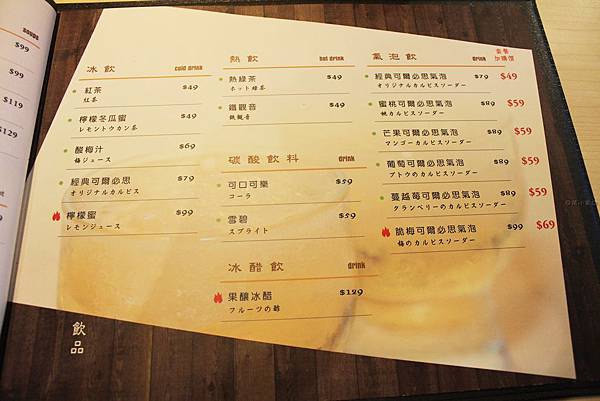 soups
$99
$99
$119
$129
冰飲 cold drink
紅茶 $49
紅茶
檸檬冬瓜蜜 $49
レモントウカン茶
酸梅汁 $69
梅ジュース
經典可爾必思 $79
オリジナルカルピス
檸檬蜜 $99
レモンジュース
熱飲 hot drink
熱綠茶 $49
ホット緑茶
鐵觀音 $49
鉄観音
碳酸飲料 drink
可口可樂 $59
コーラ
雪碧 $59
スプライト
冰醋飲 drink
果釀冰醋 $129
フルーツの酢
氣泡飲 drink 套餐加購價
經典可爾必思氣泡 $79 $49
オリジナルカルピスソーダー
蜜桃可爾必思氣泡 $89 $59
桃カルピスソーダー
芒果可爾必思氣泡 $89 $59
マンゴーカルピスソーダー
葡萄可爾必思氣泡 $89 $59
ブトウのカルピスソーダー
蔓越莓可爾必思氣泡 $89 $59
クランベリーのカルピスソーダー
脆梅可爾必思氣泡 $99 $69
梅のカルピスソーダー
飲品